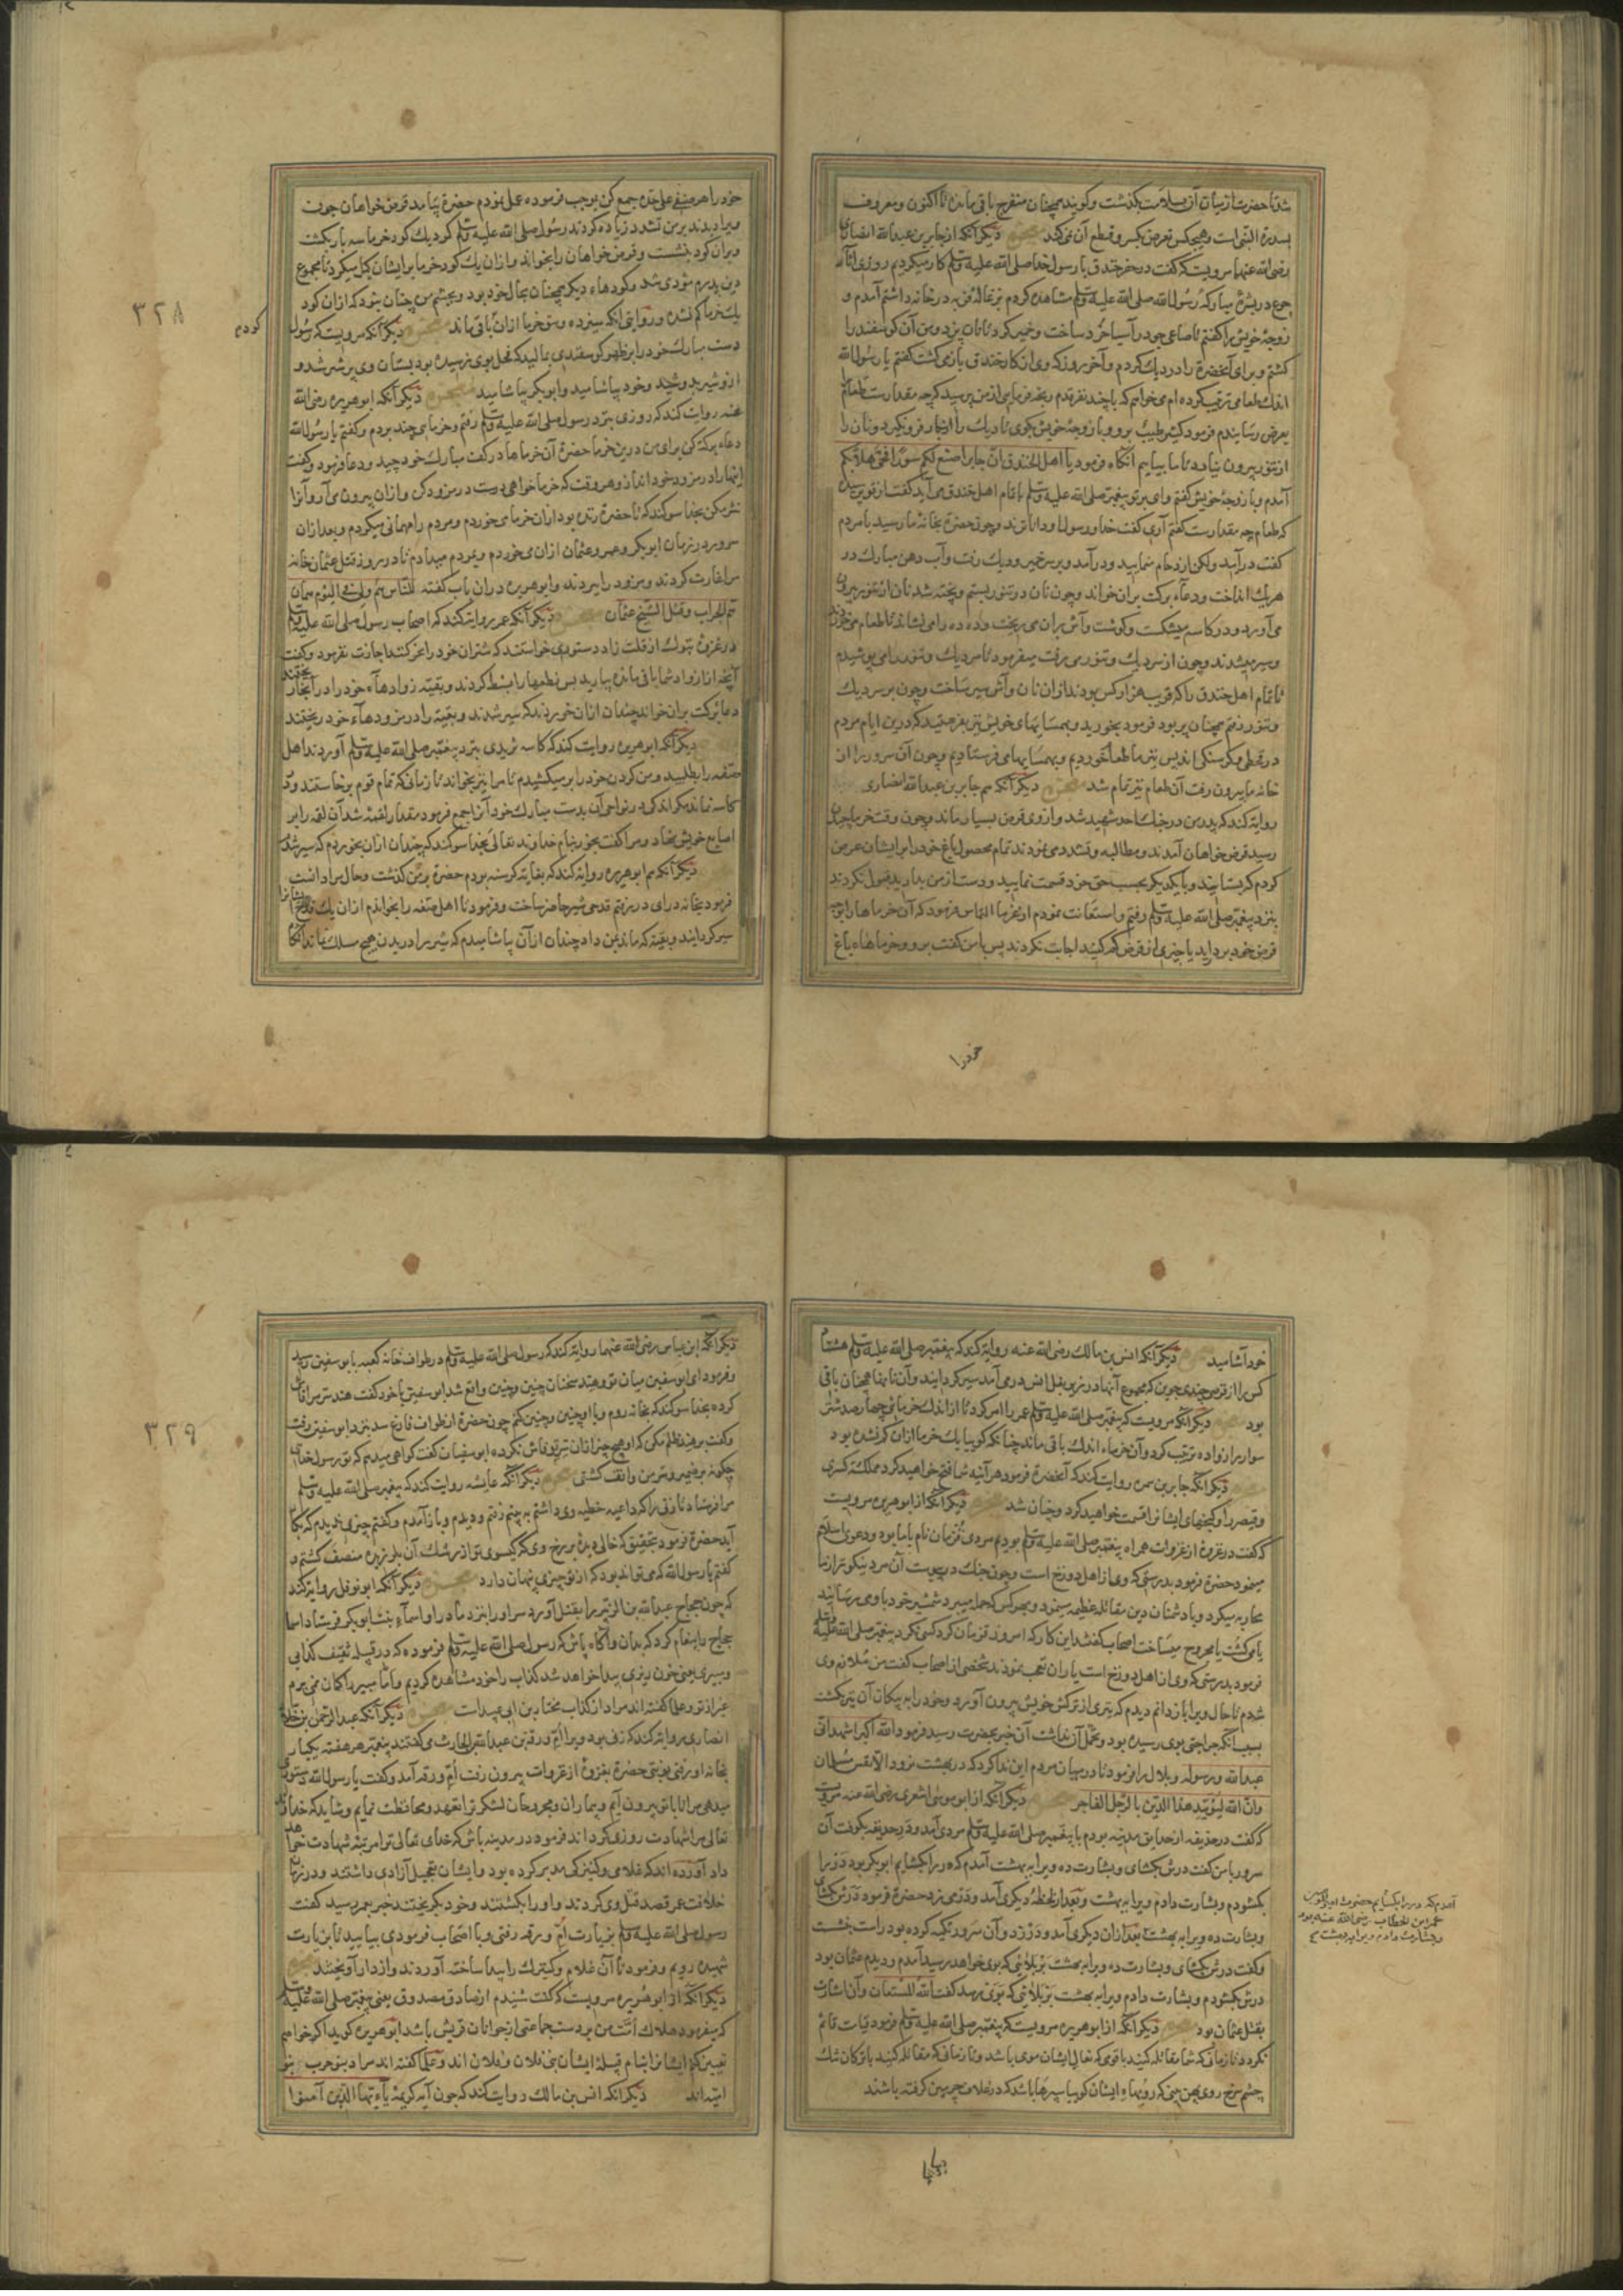 شد تا حضرت از میان آن بسلامت بگذشت و گویند همچنان منفرج باقی مانده تا اکنون و معروف
بسدرة النبی است و هیچکس تعرض بکسر و قطع آن نمی کند معجزه دیگر آنکه از جابر بن عبدالله انصاری
رضی الله عنهما مرویست که گفت در حفر خندق با رسول خدا صلی الله علیه وسلم کار میکردم روزی اثر
جوع در بشرهٔ مبارکهٔ رسول الله صلی الله علیه وسلم مشاهده کردم بزغالهٔ فربه در خانه داشتم آمدم و
زوجهٔ خویش را گفتم تا صاعی جو در آسیا خرد ساخت و خمیر کرد تا نان پزد و من آن گوسفند را
کشتم و برای آنحضرة را در دیك کردم و آخر روز که وی از کار خندق باز می گشت گفتم یا رسول الله
اندك طعامی ترتیب کرده ام می خواهم که با چند نفر قدم رنجه فرمایی از من پرسید که چه مقدارست طعام
بعرض رسانیدم فرمود کثیر طیب برو و با زوجهٔ خویش بگوی تا دیك را از نجار فرو نگیرد و نان را
از تنور بیرون نیاورد تا ما بیاییم آنگاه فرمود یا اهل الخندق ان جابرا صنع لکم سورا فحی هلا بکم
آمدم و با زوجهٔ خویش گفتم وای بر تو پیغمبر صلی الله علیه وسلم با تمام اهل خندق می آید گفت از تو پرسید
که طعام چه مقدارست گفتم آری گفت خدا و رسول او داناترند و چون حضرة بخانهٔ ما رسید با مردم
گفت در آیید ولکن ازدحام منمایید و درآمد و بر سر خمیر و دیك رفت و آب دهن مبارك در
هر یك انداخت و دعاء برکت بران خواند و چون نان در تنور بستیم و پخته شد نان از تنور بیرون
می آورد و در کاسه میشکست و گوشت و آش بران می ریخت و ده ده را می نشاند تا طعام می خوردند
و سیر میشدند و چون از سر دیك و تنور می رفت میفرمود تا سر دیك و تنور را می پوشیدم
تا تمام اهل خندق را که قریب هزار کس بودند ازان نان و آش سیر ساخت و چون بر سر دیك
و تنور رفتم همچنان پر بود فرمود بخورید و بهمسایهای خویش نیز بفرستید که درین ایام مردم
در قحطی و گرسنگی اند پس نیز ما طعام خوردیم و بهمسایها می فرستادیم و چون آن سرور از
خانه ما بیرون رفت آن طعام نیز تمام شد معجزه دیگر آنکه هم جابر بن عبدالله انصاری
روایة کند که پدر من در جنك احد شهید شد و از وی قرض بسیار ماند و چون وقت خرما چیدن
رسید قرض خواهان آمدند و مطالبه و تشدد می نمودند تمام محصول باغ خود را بر ایشان عرض
کردم که بستانید و با یکدیگر بحسب حق خود قسمت نمایید و دست از من بدارید قبول نکردند
بنزد پیغمبر صلی الله علیه وسلم رفتم و استعانت نمودم از غرما التماس فرمود که آن خرماها را بوجه
قرض خود بردارید یا چیزی از قرض کم کنید اجابت نکردند پس با من گفت برو و خرماهاء باغ
خودرا
خود را هر صنفی علی حده جمع کن بموجب فرموده عمل نمودم حضرة بیامد قرض خواهان چون
ویرا دیدند بر من تشدد زیاده کردند رسول صلی الله علیه وسلم گرد یك کود خرما سه بار بگشت
و بران کود بنشست و قرض خواهان را بخواند و ازان یك کود خرما برای ایشان کیل میکرد تا مجموع
دین پدرم مؤدی شد و کودهاء دیگر همچنان بحال خود بود و بچشم من چنان نمود که ازان کود
یك خرما کم نشد و روایتی آنکه سیزده وسق خرما ازان باقی ماند معجزه دیگر آنکه مرویست که رسول
کودم
دست مبارك خود را بر ظهر گوسفندی بمالید که فحل بوی نرسیده بود پستان وی پر شیر شد و
ازو شیر بدوشید و خود بیاشامید و ابوبکر بیاشامید معجزه دیگر آنکه ابو هریره رضی الله
عنه روایت کند که روزی بنزد رسول صلی الله علیه وسلم رفتم و خرمایی چند بردم و گفتم یا رسول الله
دعاء برکة کن برای من درین خرما حضرة آن خرماها در کف مبارك خود چید و دعا فرمود و گفت
اینها را در مزود خود انداز و هر وقت که خرما خواهی دست در مزود کن و ازان بیرون می آر و آنرا
نثر مکن بخدا سوگند که تا حضرة زنده بود ازان خرما می خوردم و مردم را مهمانی میکردم و بعد ازان
سرور در زمان ابوبکر و عمر و عثمان ازان می خوردم و بمردم میدادم تا در روز قتل عثمان خانه
مرا غارت کردند و مزود را ببردند و ابو هریره دران باب گفته للناس هم ولی فی الیوم همان
هم الجراب و قتل الشیخ عثمان معجزه دیگر آنکه عمر روایة کند که اصحاب رسول صلی الله علیه وسلم
در غزوهٔ تبوك از قلت زاد دستوری خواستند که شتران خود را نحر کنند اجازت نفرمود و گفت
آنچه از ازواد شما باقی مانده بیارید پس نطعها را بسط کردند و بقیهٔ زوادهاء خود را در آنجا ریختند
دعا برکت بران خواند چندان ازان خوردند که سیر شدند و بقیه را در مزودهاء خود ریختند
معجزه دیگر آنکه ابو هریره روایت کند که کاسه ثریدی بنزد پیغمبر صلی الله علیه وسلم آوردند اهل
صفه را بطلبید و من گردن خود را بر میکشیدم تا مرا نیز بخواند تا زمانی که تمام قوم برخاستند و در
کاسه نماند مگر اندکی در نواحی آن بدست مبارك خود آنرا جمع فرمود مقدار لقمهٔ شد آن لقمه را بر
اصابع خویش نهاد و مرا گفت بخور بنام خداوند تعالی بخدا سوگند که چندان ازان بخوردم که سیر شدم
معجزه دیگر آنکه هم ابو هریره روایة کند که بغایة گرسنه بودم حضرة بر من گذشت و حال مرا دانست
فرمود بخانه درای در رفتم قدحی شیر حاضر ساخت و فرمود تا اهل صفه را بخواندم ازان یك قدح ایشانرا
سیر گردانید و بقیة که ماند بمن داد چندان ازان بیاشامیدم که شیر را در بدن هیچ مسلك نماند آنگاه
٣٢٨
خود آشامید معجزه دیگر آنکه انس بن مالك رضی الله عنه روایة کند که پیغمبر صلی الله علیه وسلم هشتاد
کس را از قرص چندی جوین که مجموع آنها در زیر بغل انس در می آمد سیر گردانید و آن نانها همچنان باقی
بود معجزه دیگر آنکه مرویست که پیغمبر صلی الله علیه وسلم عمر را امر کرد تا از اندك خرمایی چهارصد شتر
سوار را زواده ترتیب کرد و آن خرماء اندك باقی ماند چنانکه گوییا یك خرما ازان کم نشده بود
معجزه دیگر آنکه جابر بن سمره روایت کند که آنحضرة فرمود هر آینه شما فتح خواهید کرد مملکة کسری
و قیصر را و گنجهای ایشانرا قسمت خواهید کرد و چنان شد معجزه دیگر آنکه از ابو هریره مرویست
که گفت در غزوهٔ از غزوات همراه پیغمبر صلی الله علیه وسلم بودیم مردی قزمان نام با ما بود و دعوی اسلام
مینمود حضرة فرمود بدرستی که وی از اهل دوزخ است و چون جنك در پیوست آن مرد نیکوتر از ما
محاربه میکرد و با دشمنان دین مقاتلهٔ عظیمه مینمود و بهر کس که حمله میبرد شمشیر خود با وی میرسانید
یا می کشت یا مجروح میساخت اصحاب گفتند این کار که امروز قزمان کرد کسی نکرد پیغمبر صلی الله علیه وسلم
فرمود بدرستی که وی از اهل دوزخ است یاران تعجب نمودند شخصی از اصحاب گفت من ملازم وی
شدم تا حال ویرا باز دانم دیدم که تیری از ترکش خویش بیرون آورد و خود را به پیکان آن تیر بکشت
بسبب آنکه جراحتی بوی رسیده بود و تحمل آن نداشت آن خبر بحضرت رسید فرمود الله اکبر اشهد انی
عبدالله ورسوله و بلال را فرمود تا در میان مردم این ندا کرد که در بهشت نرود الا نفس مسلمان
وان الله لیؤید هذا الدین بالرجل الفاجر معجزه دیگر آنکه از ابو موسی اشعری رضی الله عنه مرویست
که گفت در حدیقه از حدایق مدینه بودم با پیغمبر صلی الله علیه وسلم مردی آمد و در حدیقه بکوفت آن
سرور با من گفت درش بگشای و بشارت ده ویرا به بهشت آمدم که در را بگشایم ابوبکر بود در را
بگشودم و بشارت دادم ویرا به بهشت و بعد از لحظهٔ دیگری آمد و در می زد حضرة فرمود درش بگشای
و بشارت ده ویرا به بهشت بعد ازان دیگری آمد و در زد و آن سرور تکیه کرده بود راست بنشست
و گفت درش بگشای و بشارت ده ویرا به بهشت بر بلائی که بوی خواهد رسید آمدم و دیدم عثمان بود
درش بگشودم و بشارت دادم ویرا به بهشت بر بلائی که بوی رسد گفت الله المستعان و آن اشارت
بقتل عثمان بود معجزه دیگر آنکه از ابو هریره مرویست که پیغمبر صلی الله علیه وسلم فرمود قیامت قائم
نگردد تا زمانی که شما مقاتله کنید با قومی که نعال ایشان موی باشد و تا زمانی که مقاتله کنید با ترکان تنك
چشم سرخ روی پهن بینی که رویهاء ایشان گوییا سپرها باشد که در غلاف چرمین گرفته باشند
آمدم که در را بگشایم حضرت امیرالمؤمنین
عمر ابن الخطاب رضی الله عنه بود
و بشارت دادم ویرا به بهشت صح
دیگر آنکه ابن عباس رضی الله عنهما روایة کند که رسول صلی الله علیه وسلم در طواف خانه کعبه با بوسفین رسید
و فرمود ای ابوسفین میان تو و هند سخنان چنین و چنین واقع شد ابوسفین با خود گفت هند سر مرا فاش
کرده بخدا سوگند که بخانه روم و با او چنین و چنین کنم چون حضرة از طواف فارغ شد بنزد ابوسفین رفت
و گفت بر هند ظلم مکن که او هیچ چیز ازان سر تو فاش نکرده ابوسفیان گفت گواهی میدهم که تو رسول خدایی
چگونه بر ضمیر و سر من واقف گشتی معجزه دیگر آنکه عایشه روایت کند که پیغمبر صلی الله علیه وسلم
مرا فرستاد تا زنی را که داعیه خطبه وی داشتم به بینم رفتم و دیدم و باز آمدم و گفتم چیزی ندیدم که بکار
آید حضرة فرمود بتحقیق که خالی دیدهٔ بر رخ وی که گیسوی تو از رشك آن بلرزید منصف گشتم و
گفتم یا رسول الله که می تواند بود که از تو چیزی پنهان دارد معجزه دیگر آنکه ابو نوفل روایة کند
که چون حجاج عبدالله بن الزبیر را بقتل آورد سر او را بنزد مادر او اسماء بنت ابوبکر فرستاد اسما
حجاج را پیغام کرد که بدان و آگاه باش که رسول صلی الله علیه وسلم فرموده که در قبیله ثقیف کذابی
و مبیری یعنی خون ریزی پیدا خواهد شد کذاب را خود مشاهده کردیم و اما مبیر را گمان نمی برم
غیر از تو و علما گفته اند مراد از کذاب مختار بن ابی عبید است معجزه دیگر آنکه عبدالرحمن بن خلاد
انصاری روایة کند که زنی بود ویرا ام ورقه بنت عبدالله بن الحارث می گفتند پیغمبر هر هفته یکبار
بخانه او رفتی نوبتی حضرة بغزوهٔ از غزوات بیرون رفت ام ورقه آمد و گفت یا رسول الله دستوری
میدهی مرا تا با تو بیرون آیم و بیماران و مجروحان لشکر ترا تعهد و محافظت نمایم و شاید که خدای
تعالی مرا شهادت روزی گرداند فرمود در مدینه باش که خدای تعالی ترا مرتبهٔ شهادت خواهد
داد آورده اند که غلامی و کنیزکی مدبر کرده بود و ایشان تعجیل آزادی داشتند و در زمان
خلافت عمر قصد قتل وی کردند و او را بکشتند و خود بگریختند خبر بعمر رسید گفت
رسول صلی الله علیه وسلم بزیارت ام ورقه رفتی و با اصحاب فرمودی بیایید تا بزیارت
شهیده رویم و فرمود تا آن غلام و کنیزك را پیدا ساخته آوردند و از دار آویختند معجزه
دیگر آنکه از ابو هریره مرویست که گفت شنیدم از صادق مصدوق یعنی پیغمبر صلی الله علیه وسلم
که میفرمود هلاك امت من بر دست جماعتی از جوانان قریش باشد ابو هریره گوید اگر خواهم
تعیین کنم ایشانرا بنام و قبیلهٔ ایشان بنی فلان و فلان اند و علما گفته اند مراد بنو حرب و بنو
امیه اند دیگر آنکه انس بن مالك روایت کند که چون آیه کریمهٔ یا ایها الذین آمنوا
٣٢٩